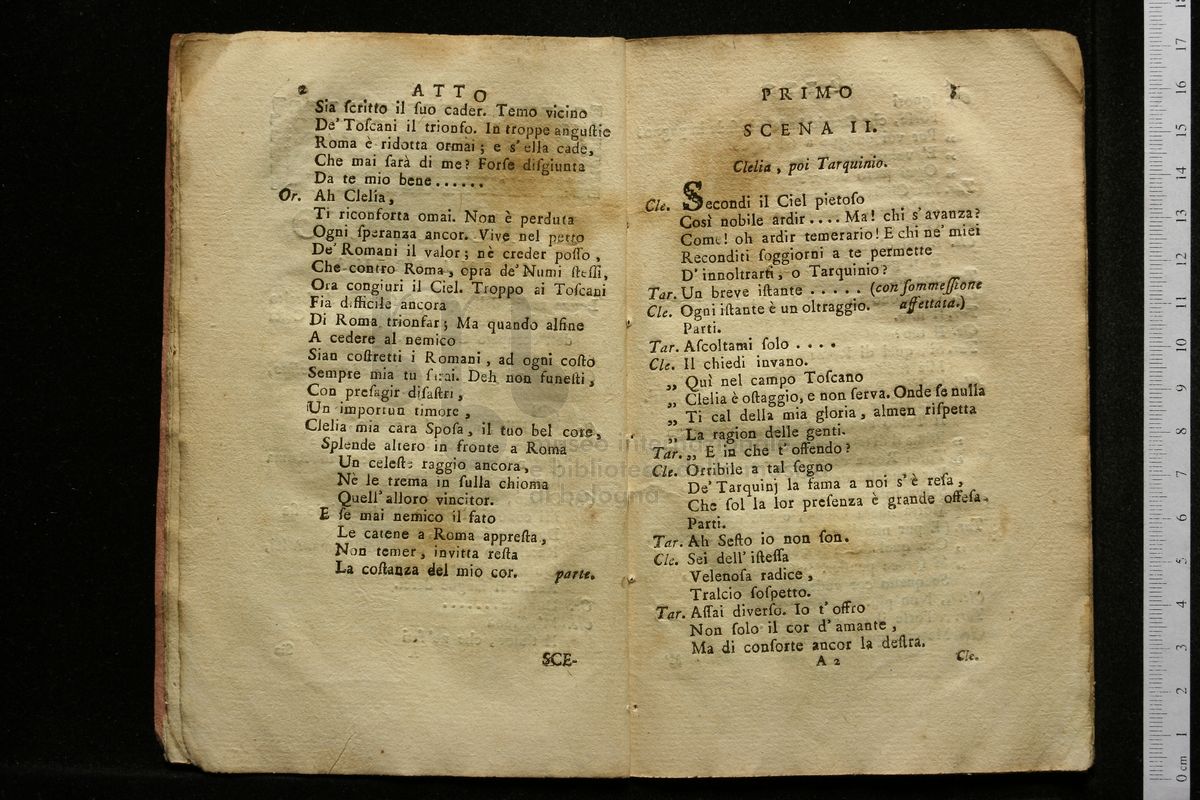 2 ATTO
Sia ſcritto il ſuo cader. Temo vicino
De' Toſcani il trionfo. In troppe anguſtie
Roma è ridotta ormai; e s' ella cade,
Che mai ſarà di me? Forſe diſgiunta
Da te mio bene......
Or. Ah Clelia,
Ti riconforta omai. Non è perduta
Ogni ſperanza ancor. Vive nel petto
De' Romani il valor; nè creder poſſo,
Che contro Roma, opra de' Numi ſteſſi,
Ora congiuri il Ciel. Troppo ai Toſcani
Fia difficile ancora
Di Roma trionfar; Ma quando alfine
A cedere al nemico
Sian coſtretti i Romani, ad ogni coſto
Sempre mia tu ſarai. Deh non funeſti,
Con preſagir diſaſtri,
Un importun timore,
Clelia mia cara Spoſa, il tuo bel core,
Splende altero in fronte a Roma
Un celeſte raggio ancora,
Nè le trema in ſulla chioma
Quell' alloro vincitor.
E ſe mai nemico il fato
Le catene a Roma appreſta,
Non temer, invitta reſta
La coſtanza del mio cor. parte.
SCE-
PRIMO 3
SCENA II.
Clelia, poi Tarquinio.
Cle. Secondi il Ciel pietoſo
Così nobile ardir.... Ma! chi s' avanza?
Come! oh ardir temerario! E chi ne' miei
Reconditi ſoggiorni a te permette
D' innoltrarti, o Tarquinio?
Tar. Un breve iſtante ..... (con ſommeſſione
Cle. Ogni iſtante è un oltraggio. affettata.)
Parti.
Tar. Aſcoltami ſolo ....
Cle. Il chiedi invano.
„ Quì nel campo Toſcano
„ Clelia è oſtaggio, e non ſerva. Onde ſe nulla
„ Ti cal della mia gloria, almen riſpetta
„ La ragion delle genti.
Tar. „ E in che t' offendo?
Cle. Orribile a tal ſegno
De' Tarquinj la fama a noi s' è reſa,
Che ſol la lor preſenza è grande offeſa.
Parti.
Tar. Ah Seſto io non ſon.
Cle. Sei dell' iſteſſa
Velenoſa radice,
Tralcio ſoſpetto.
Tar. Aſſai diverſo. Io t' offro
Non ſolo il cor d' amante,
Ma di conſorte ancor la deſtra.
A 2 Cle.
museo internazionale
e biblioteca della musica
di bologna
0 cm 1 2 3 4 5 6 7 8 9 10 11 12 13 14 15 16 17 18